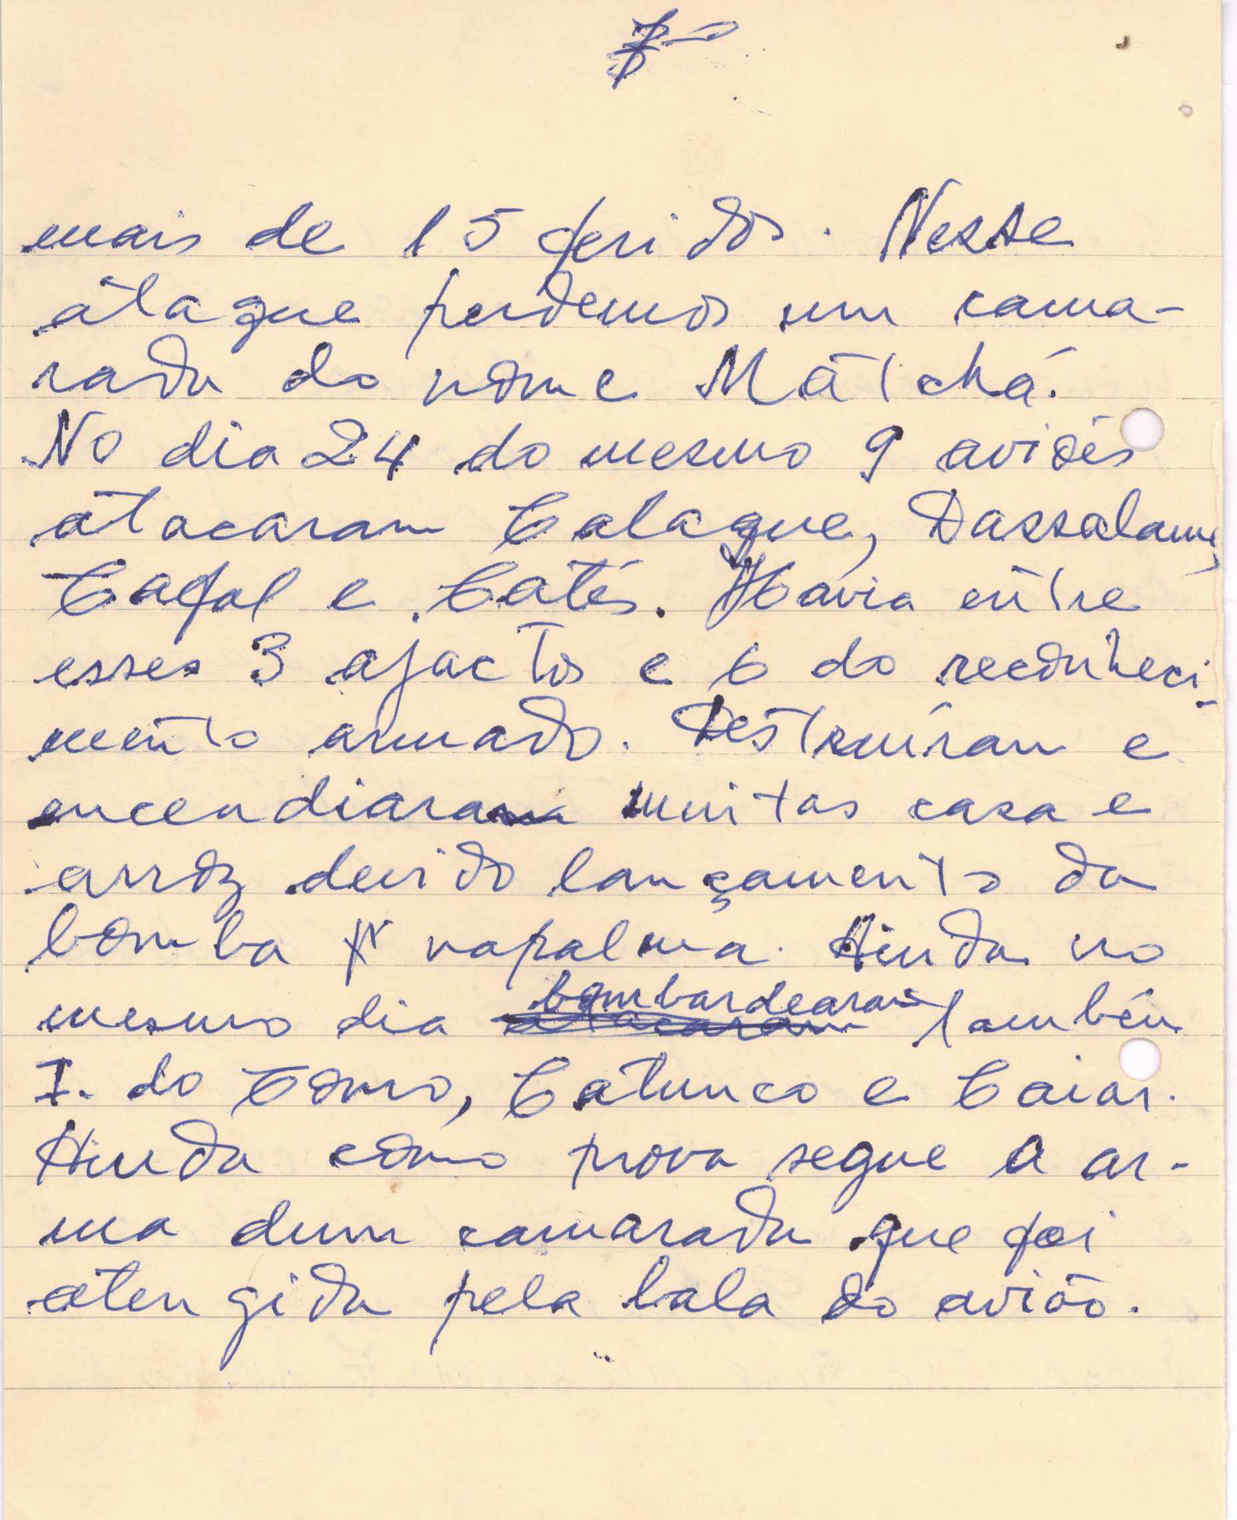 7-
mais de 15 feridos. Nesse
ataque perdemos um cama-
rada do nome Matchá.
No dia 24 do mesmo 9 aviões
atacaram Calaque, Dassalame,
Cafal e Catés. Havia entre
esses 3 ajactos e 6 do reconheci-
mento armado. Destruíram e
encendiaram muitas casa e
arroz devido lançamento da
bomba napalma. Ainda no
mesmo dia bombardearam também
I. do Como, Catunco e Caiar.
Ainda como prova segue a ar-
ma dum camarada que foi
atengida pela bala do avião.